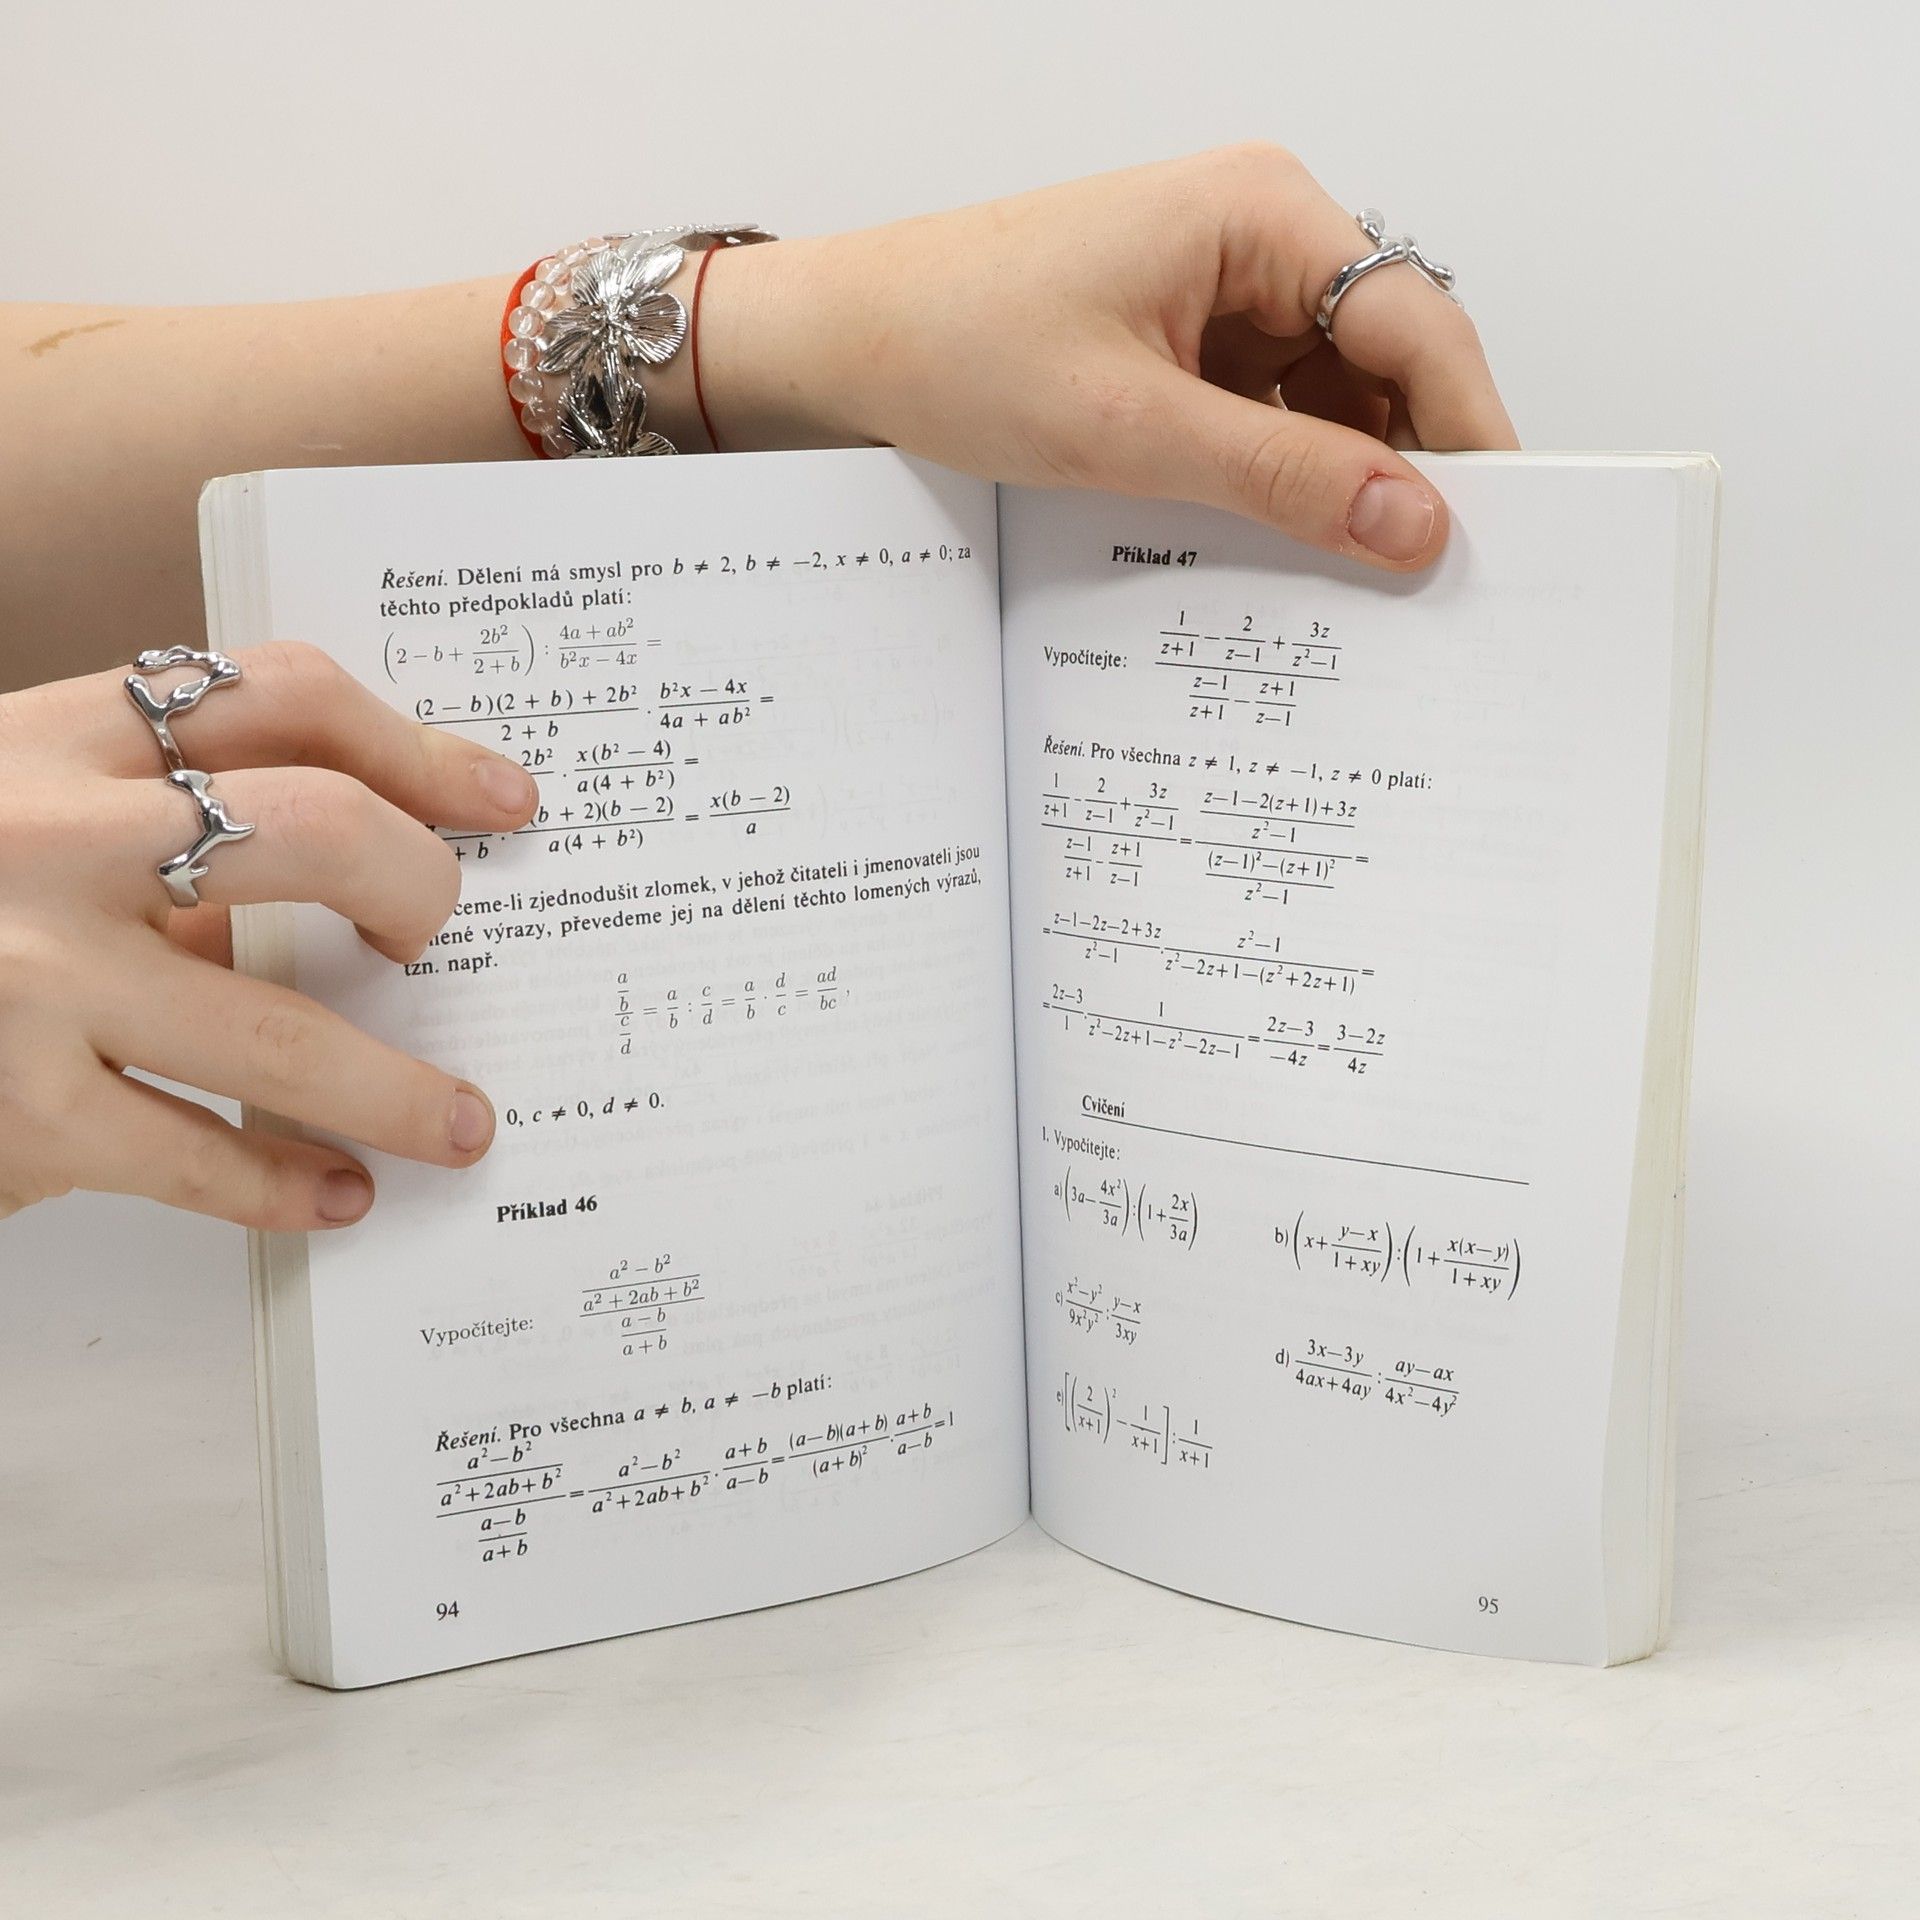 Řešení. Dělení má smysl pro b ≠ 2, b ≠ −2, x ≠ 0, a ≠ 0; za
těchto předpokladů platí:
(2 − b + 2b²/(2 + b)) : (4a + ab²)/(b²x − 4x) =
((2 − b)(2 + b) + 2b²)/(2 + b) · (b²x − 4x)/(4a + ab²) =
2b² · x(b² − 4)/(a(4 + b²)) =
+ b · (b + 2)(b − 2)/(a(4 + b²)) = x(b − 2)/a
zjednodušit zlomek, v jehož čitateli i jmenovateli jsou
výrazy, převedeme jej na dělení těchto lomených výrazů,
tzn. např.
(a/b)/(c/d) = a/b : c/d = a/b · d/c = ad/bc,
0, c ≠ 0, d ≠ 0.
Příklad 46
Vypočítejte: ((a² − b²)/(a² + 2ab + b²))/((a − b)/(a + b))
Řešení. Pro všechna a ≠ b, a ≠ −b platí:
((a²−b²)/(a²+2ab+b²))/((a−b)/(a+b)) = (a²−b²)/(a²+2ab+b²) · (a+b)/(a−b) = ((a−b)(a+b))/(a+b)² · (a+b)/(a−b) = 1
94
Příklad 47
Vypočítejte: (1/(z+1) − 2/(z−1) + 3z/(z²−1))/((z−1)/(z+1) − (z+1)/(z−1))
Řešení. Pro všechna z ≠ 1, z ≠ −1, z ≠ 0 platí:
(1/(z+1) − 2/(z−1) + 3z/(z²−1))/((z−1)/(z+1) − (z+1)/(z−1)) = ((z−1−2(z+1)+3z)/(z²−1))/(((z−1)²−(z+1)²)/(z²−1)) =
= (z−1−2z−2+3z)/(z²−1) · (z²−1)/(z²−2z+1−(z²+2z+1)) =
= (2z−3)/1 · 1/(z²−2z+1−z²−2z−1) = (2z−3)/(−4z) = (3−2z)/4z
Cvičení
1. Vypočítejte:
a) (3a − 4x²/3a) : (1 + 2x/3a)
b) (x + (y−x)/(1+xy)) : (1 + x(x−y)/(1+xy))
c) (x²−y²)/9x²y² : (y−x)/3xy
d) (3x−3y)/(4ax+4ay) : (ay−ax)/(4x²−4y²)
e) [(2/(x+1))² − 1/(x+1)] : 1/(x+1)
95